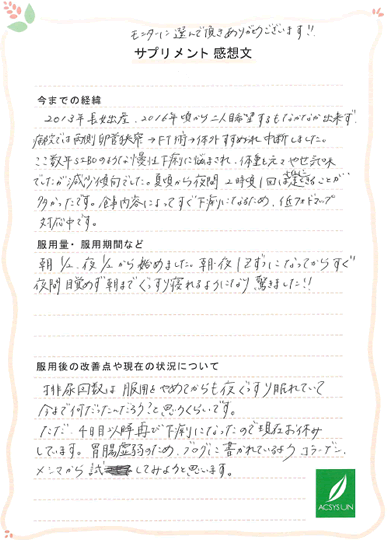 モニターに選んで頂きありがとうございます!!
サプリメント 感想文
今までの経緯
2013年長女出産、2016年頃から二人目希望するもなかなか出来ず、
病院では両側卵管狭窄→FT術→体外すすめられ中断しました。
ここ数年SIBOのような慢性下痢に悩まされ、体重も元々やせ気味
でしたが減少傾向でした。夏頃から夜間 2時頃1回は起きることが
多かったです。食事内容によってすぐ下痢になるため、低フォドマップ
対応中です。
服用量・服用期間など
朝1/2、夜1/2から始めました。朝・夜1ずつになってからすぐ
夜間目覚めず朝までぐっすり寝れるようになり驚きました!!
服用後の改善点や現在の状況について
排尿回数は服用をやめてからも夜ぐっすり眠れていて
今まで何だったんだろう?と思うくらいです。
ただ、4日目以降再び下痢になったので現在お休み
しています。胃腸虚弱のため、ブログに書かれているようコラーゲン、
メンマから試してみようと思います。
ACSYSUN